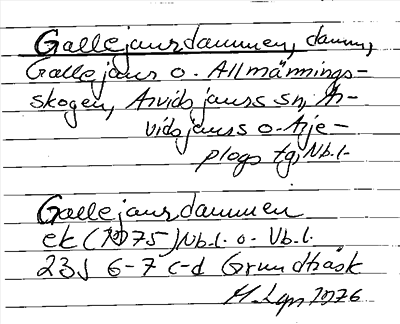 Gallejaurdammen, damm,
Gallejaurs o. Allmännings-
skogen, Arvidsjaurs sn, Ar-
vidsjaurs o. Arje-
plogs tg, Nb.l.
Gallejaurdammen
ek (1975) Nb.l. o. Vb.l.
23J 6-7 c-d Grundträsk
1976